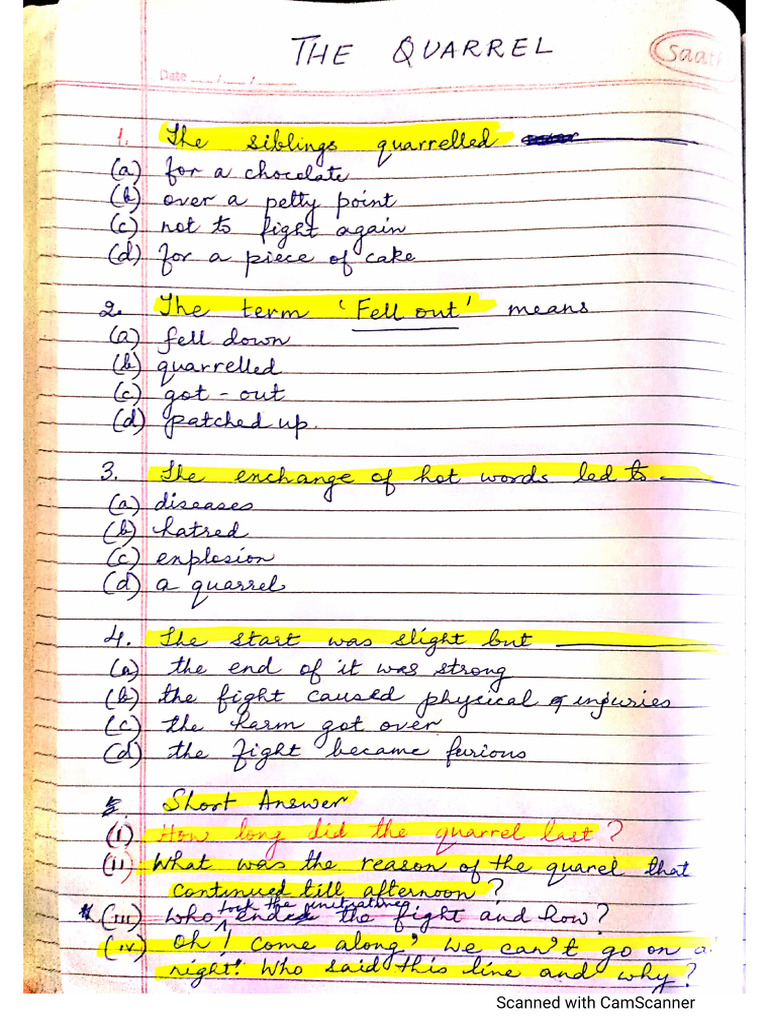 THE QUARREL
Saat
Date ___/___/______
1. The siblings quarrelled ________
(a) for a chocolate
(b) over a petty point
(c) not to fight again
(d) for a piece of cake
2. The term ‘Fell out’ means
(a) fell down
(b) quarrelled
(c) got-out
(d) patched up.
3. The exchange of hot words led to ___
(a) diseases
(b) hatred
(c) explosion
(d) a quarrel
4. The start was slight but ________
(a) the end of it was strong
(b) the fight caused physical injuries
(c) the harm got over
(d) the fight became furious
5. Short Answer
(i) How long did the quarrel last?
(ii) What was the reason of the quarel that
continued till afternoon?
took the initiative
(iii) Who ended the fight and how?
(iv) Oh! come along, we can't go on a
night! Who said this line and why?
Scanned with CamScanner